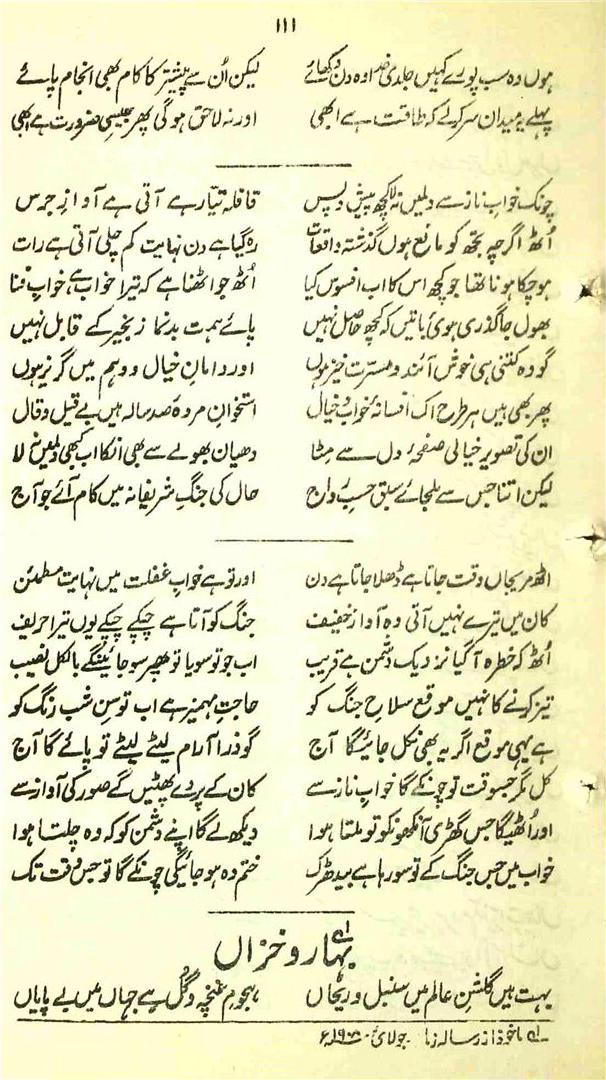 ۱۱۱
ہوں وہ سب پورے کہیں جلدی خدا وہ دن دکھائے لیکن اُن سے پیشتر کا کام بھی انجام پائے
پہلے یہ میدان سر کرلے کہ طاقت ہے ابھی اور نہ لاحق ہوگی پھر جیسی ضرورت ہے ابھی
چونک خوابِ ناز سے دلمیں نہ لا کچھ پیش و پس قافلہ تیار ہے آتی ہے آوازِ جرس
اُٹھ اگرچہ تجھ کو مانع ہوں گذشتہ واقعات رہ گیا ہے دن نہایت کم چلی آتی ہے رات
ہوچکا ہونا تھا جو کچھ اس کا اب افسوس کیا اُٹھ جو اٹھنا ہے کہ تیرا خواب ہے خوابِ فنا
بھول جا گذری ہوئی باتیں کہ کچھ حاصل نہیں پائے ہمت بدنما زنجیر کے قابل نہیں
گو وہ کتنی ہی خوش آئند و مسرت خیز ہوں اور دامانِ خیال و وہم میں گریز ہوں
پھر بھی ہیں ہر طرح اک افسانۂ خواب و خیال استخوانِ مردہ صد سالہ ہیں بے قیل و قال
ان کی تصویرِ خیالی صفحۂ دل سے مٹا دھیان بھولے سے بھی انکا اب کبھی دلمیں نہ لا
لیکن اتنا جس سے ملجائے سبق حسبِ رواج حال کی جنگِ شریفانہ میں کام آئے جو آج
اٹھ مریجاں وقت جاتا ہے ڈھلا جاتا ہے دن اور تو ہے خوابِ غفلت میں نہایت مطمئن
کان میں تیرے نہیں آتی وہ آوازِ خفیف جنگ کو آتا ہے چپکے چپکے یوں تیرا حریف
اُٹھ کہ خطرہ آگیا نزدیک دشمن ہے قریب اب جو تو سویا تو پھر سو جائینگے بالکل نصیب
تیز کرنے کا نہیں موقع سلاحِ جنگ کو حاجتِ مہمیز ہے اب توسنِ شب رنگ کو
ہے یہی موقع اگر یہ بھی نکل جائیگا آج گو ذرا آرام لیٹے لیٹے تو پائے گا آج
کل مگر جسوقت تو چونکے گا خوابِ ناز سے کان کے پردے پھٹیں گے صور کی آواز سے
اور اُٹھیگا جس گھڑی آنکھونکو تو ملتا ہوا دیکھ لے گا اپنے دشمن کو کہ وہ چلتا ہوا
خواب میں جس جنگ کے تو سو رہا ہے بیدھڑک ختم وہ ہو جائیگی چونکے گا تو جس وقت تک
بہار و خزاں
بہت ہیں گلشنِ عالم میں سنبل و ریحاں ہجومِ غنچہ و گُل ہے جہاں میں بے پایاں
ماخوذ از رسالہ زمانہ جولائی